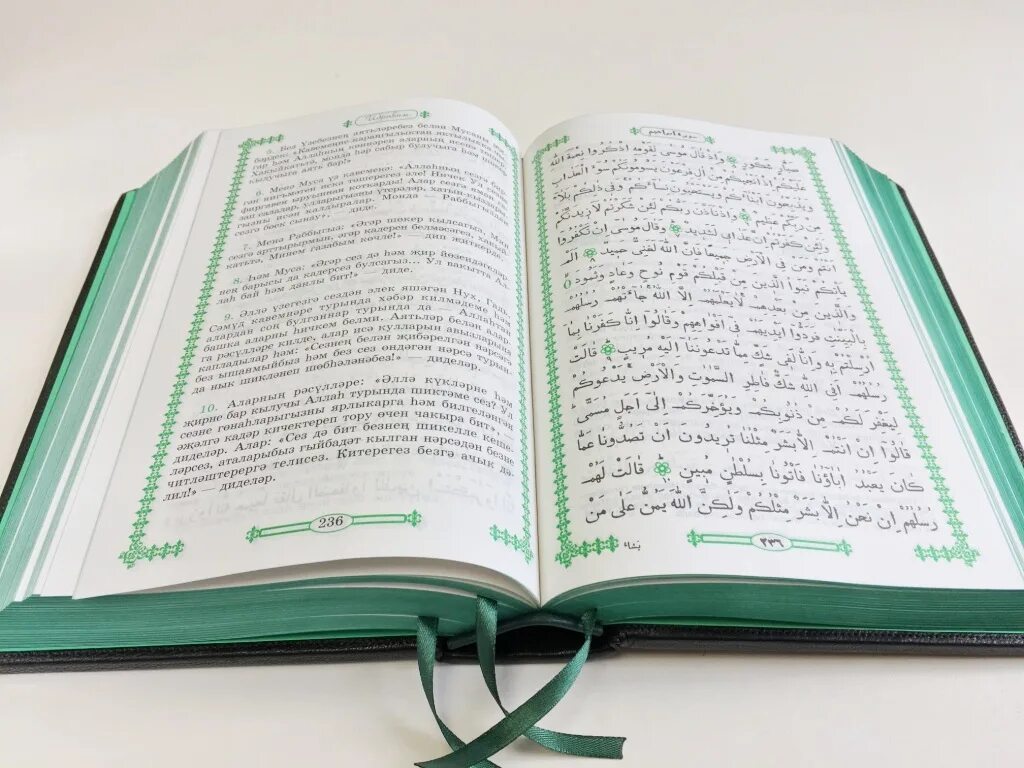 Ибраһим
5. Без Үзебезнең аятьләребез белән Мусаны
бәрдек: «Кавемеңне караңгылыктан яктылыкка чы-
гар һәм Аллаһның көннәрен аларның исенә төшер.
Хакыйкатьтә, монда һәр сабыр булучыга һәм
кылучыга аять бар!»
6. Менә Муса үз кавеменә: «Аллаһның сезгә бир-
гән нигъмәтен искә төшерегез әле! Ничек Ул
фиргавен ыруыннан коткарды! Алар сезгә
за салалар, улларыгызны үтерәләр, хатын-кызлары-
гызны исән калдыралар. Монда — Раббыгыздан
сезгә бөек сынау», — диде.
7. Менә Раббыгыз: «Әгәр шөкер кылсагыз, Мин
сезгә арттырырмын, әгәр кадерен белмәсәгез, хакый-
катьтә, Минем газабым көчле!» — дип җиткерде.
8. Һәм Муса: «Әгәр сез дә һәм җир йөзендәгеләр-
нең барысы да кадерсез булсагыз... Ул вакытта Ал-
лаһ бай һәм данлы бит!» — диде.
9. Әллә үзегезгә сездән элек яшәгән Нух, Гад,
Сәмүд кавемнәре турында хәбәр килмәдеме һәм
алардан соң булганнар турында да — Аллаһтан
башка аларны һичкем белми. Аятьләр белән аларга
рәсүлләре килде, алар исә кулларын авызларына
капладылар һәм: «Сезнең белән җибәрелгән нәрсәгә
без ышанмыйбыз һәм без сез өндәгән нәрсә турын-
да нык шикләнеп шөбһәләнәбез!» — диделәр.
10. Аларның рәсүлләре: «Әллә күкләрне һәм
җирне бар кылучы Аллаһ турында шиктәме сез? Ул
сезне гөнаһларыгызны ярлыкарга һәм билгеләнгән
әҗәлгә кадәр кичектереп тору өчен чакыра бит» —
диделәр. Алар: «Сез дә бит безнең шикелле кеше-
ләрсез, аталарыбыз гыйбадәт кылган нәрсәдән безне
читләштерергә телисез. Китерегез безгә ачык дә-
лил!» — диделәр.
236
سورة ابراهيم
صبار شكور ۞ واذ قال موسى لقومه اذكروا نعمة الله
عليكم اذ انجيكم من آل فرعون يسومونكم سوء العذاب
ويذبحون ابناءكم ويستحيون نساءكم وفي ذلكم بلاء
من ربكم عظيم ۞ واذ تأذن ربكم لئن شكرتم لازيدنكم
ولئن كفرتم ان عذابي لشديد ۞ وقال موسى ان تكفروا
انتم ومن في الارض جميعا فان الله لغني حميد ۞ الم
يأتكم نبؤا الذين من قبلكم قوم نوح وعاد وثمود
والذين من بعدهم لا يعلمهم الا الله جاءتهم رسلهم
بالبينات فردوا ايديهم في افواههم وقالوا انا كفرنا بما
ارسلتم به وانا لفي شك مما تدعوننا اليه مريب ۞ قالت
رسلهم افي الله شك فاطر السموات والارض يدعوكم
ليغفر لكم من ذنوبكم ويؤخركم الى اجل مسمى
قالوا ان انتم الا بشر مثلنا تريدون ان تصدونا عما
كان يعبد اباؤنا فأتونا بسلطن مبين ۞ قالت لهم
رسلهم ان نحن الا بشر مثلكم ولكن الله يمن على من
٢٣٦
يشاء